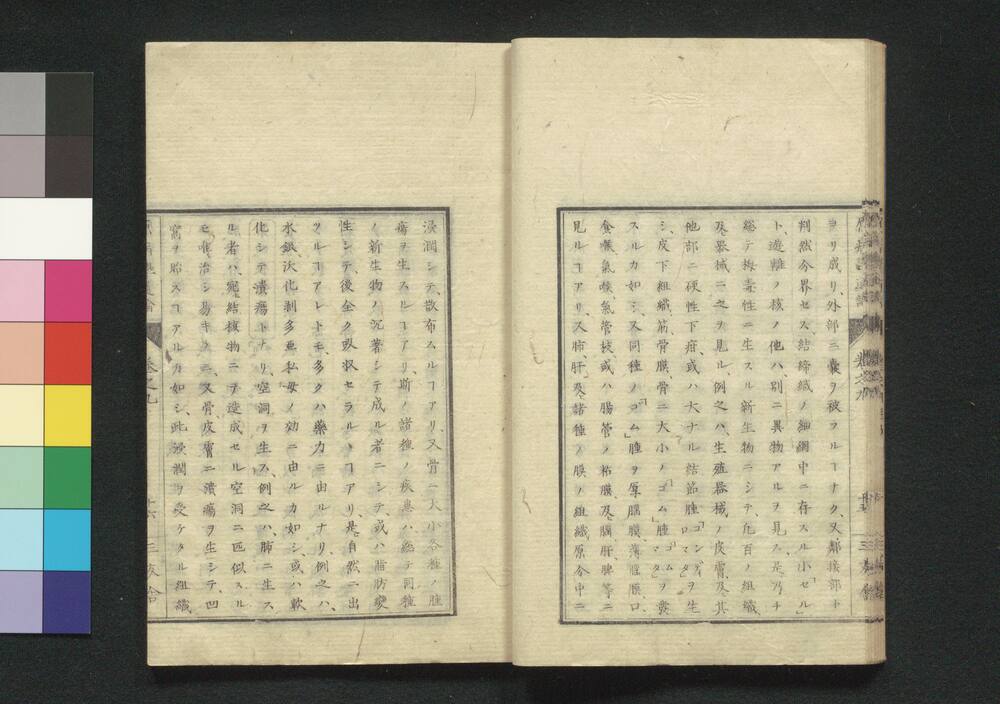 ヨリ成レリ、外部ニ嚢ヲ被フルヿナク、又、鄰接部ト
判然分界セス、結締織ノ細網中ニ存スル小「セル」
ト、遊離ノ核ノ他ハ、別ニ異物アルヲ見ス、是乃チ
總テ梅毒性ニ生スル新生物ニシテ、凡百ノ組織、
及器械ニ之ヲ見ル、例之ハ、生殖器械ノ皮膚、及其
他部ニ硬性下疳、或ハ大ナル結節腫「コンヂロマタ」ヲ生
シ、皮下組織、筋骨膜骨ニ大小ノ「ゴム」腫「ゴムマタ」ヲ發
スルカ如シ、又同種ノ「ゴム」腫ヲ厚膿膜、薄膿膜、口
食喉、氣喉、氣管枝、或ハ腸管ノ粘膜、及腦肝脾等ニ
見ルヿアリ、又肺、肝、及諸種ノ膜ノ組織原分中ニ
浸潤シテ、散布ムルヿアリ、又骨ニ大小各種ノ腫
瘍ヲ生スルヿアリ、斯ノ諸種ノ疾患ハ、總テ同種
ノ新生物ノ沉著シテ成ル者ニシテ、或ハ脂肪變
性シテ、後全ク吸收セラルヽヿアリ、是自然ニ出
ツルヿアレトモ、多クハ藥力ニ由ルナリ、例之ハ、
水銀、沃化剥多亜私母ノ効ニ由ルカ如シ、或ハ軟
化シテ潰瘍トナリ、空洞ヲ生ス、例之ハ、肺ニ生ス
ル者ハ、宛結核物ニテ造成セル空洞ニ匹似スル
モ、唯治シ易キノミ、又骨、皮膚ニ潰瘍ヲ生シテ、凹
窩ヲ貽スヿアルカ如シ、此浸潤ヲ受ケタル組織
巻之九